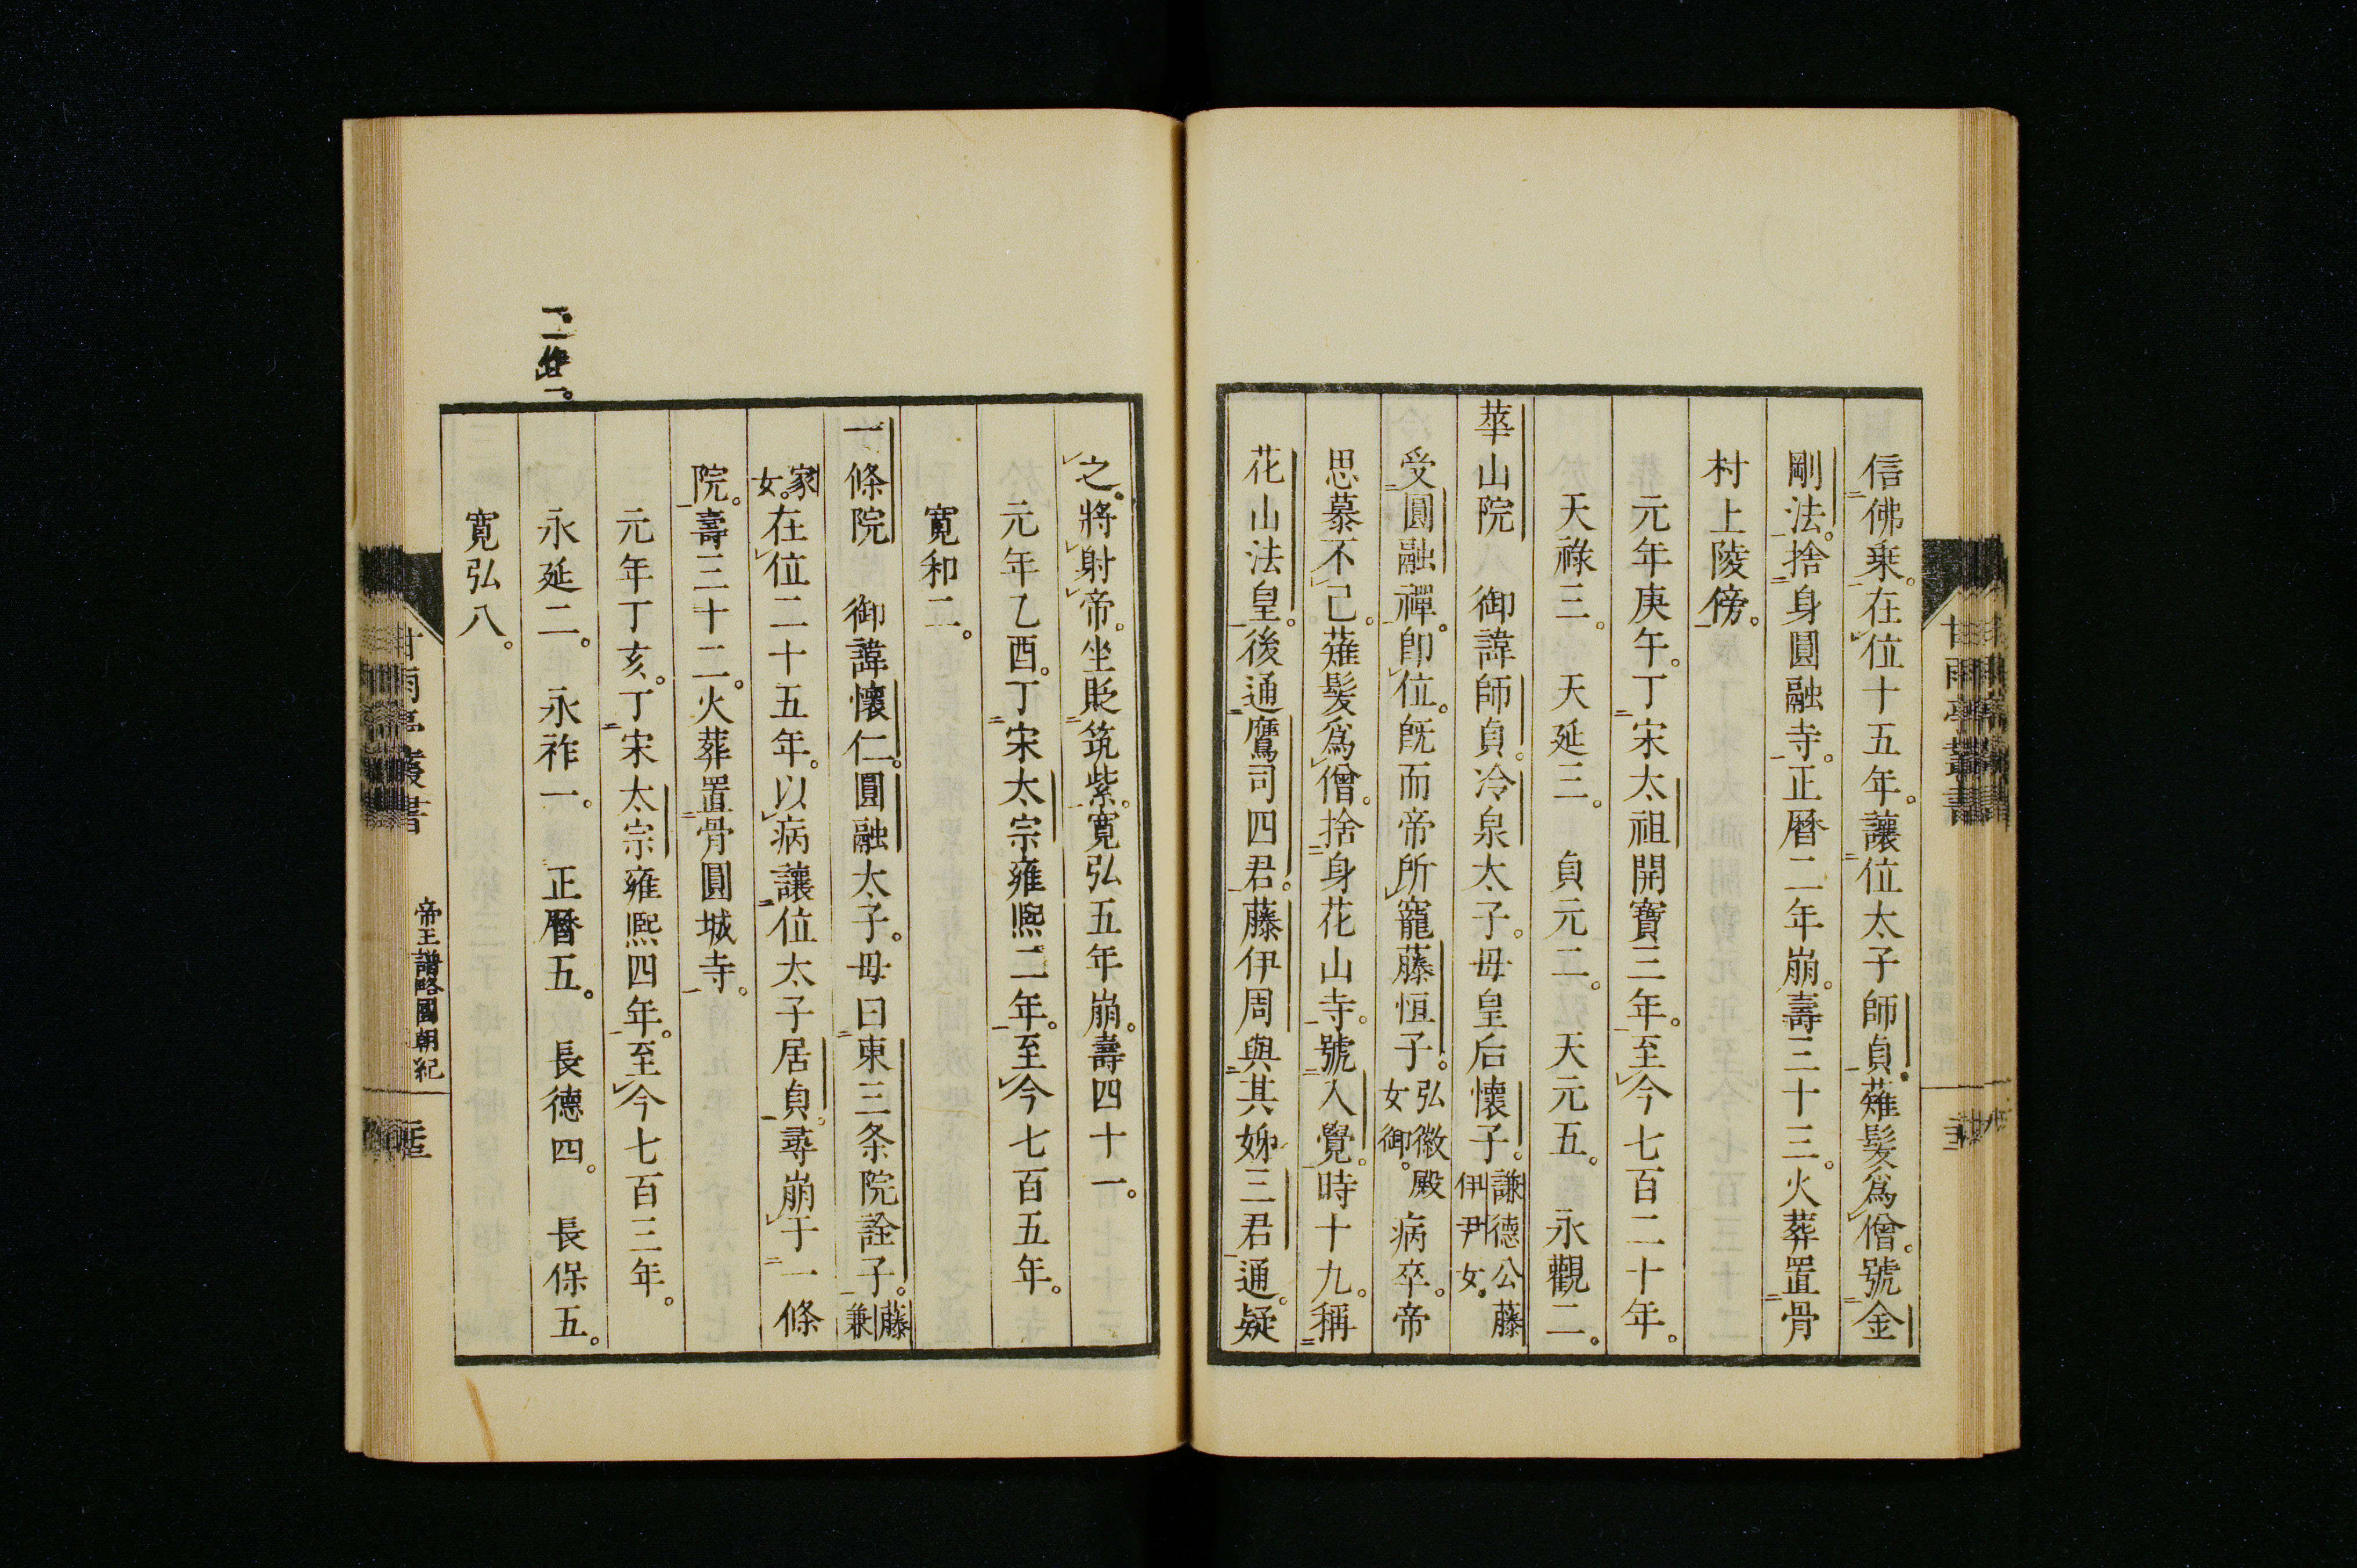 信佛乗。在位十五年。讓位太子師貞。薙髮爲僧。號金
剛法。捨身圓融寺。正曆二年崩。壽三十三。火葬置骨
村上陵傍。
元年庚午。丁宋太祖開寶三年。至今七百二十年。
天祿三。 天延三。 貞元二。 天元五。 永觀二。
華山院 御諱師貞。冷泉太子。母皇后懷子。謙德公藤伊尹女。
受圓融禪。卽位。旣而帝所寵藤恒子。弘徽殿女御。病卒。帝
思慕不已。薙髮爲僧。捨身花山寺。號入覺。時十九。稱
花山法皇。後通鷹司四君。藤伊周與其姊三君通。疑
之。將射帝。坐貶筑紫。寬弘五年崩。壽四十一。
元年乙酉。丁宋太宗雍熙二年。至今七百五年。
寬和二。
一條院 御諱懷仁。圓融太子。母曰東三条院詮子。藤兼
家女。在位二十五年。以病讓位太子居貞。尋崩于一條
院。壽三十二。火葬置骨圓城寺。
元年丁亥。丁宋太宗雍熙四年。至今七百三年。
二作一。
永延二。 永祚一。 正曆五。 長德四。 長保五。
寬弘八。
甘雨亭叢書
帝王譜略國朝紀